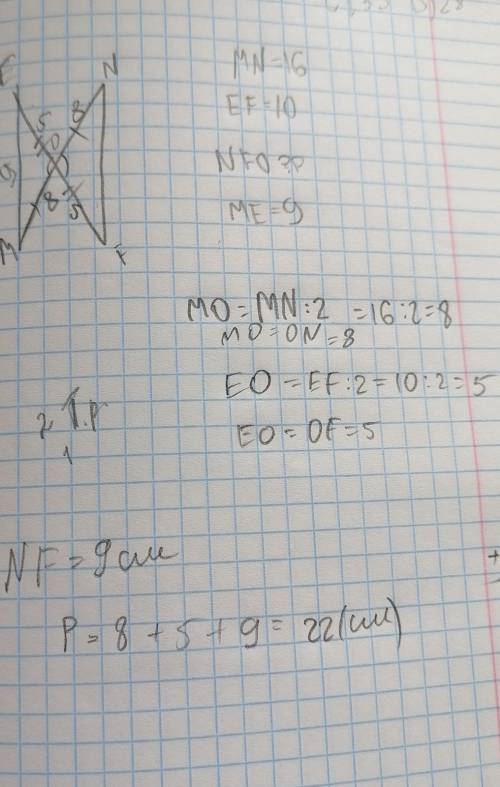 E
N
5
8
O
9
8
5
M
F
MN=16
EF=10
NFO
ME=9
MO=MN:2 =16:2=8
MO=ON=8
EO=EF:2=10:2=5
EO=OF=5
NF=9см
P=8+5+9=22(см)